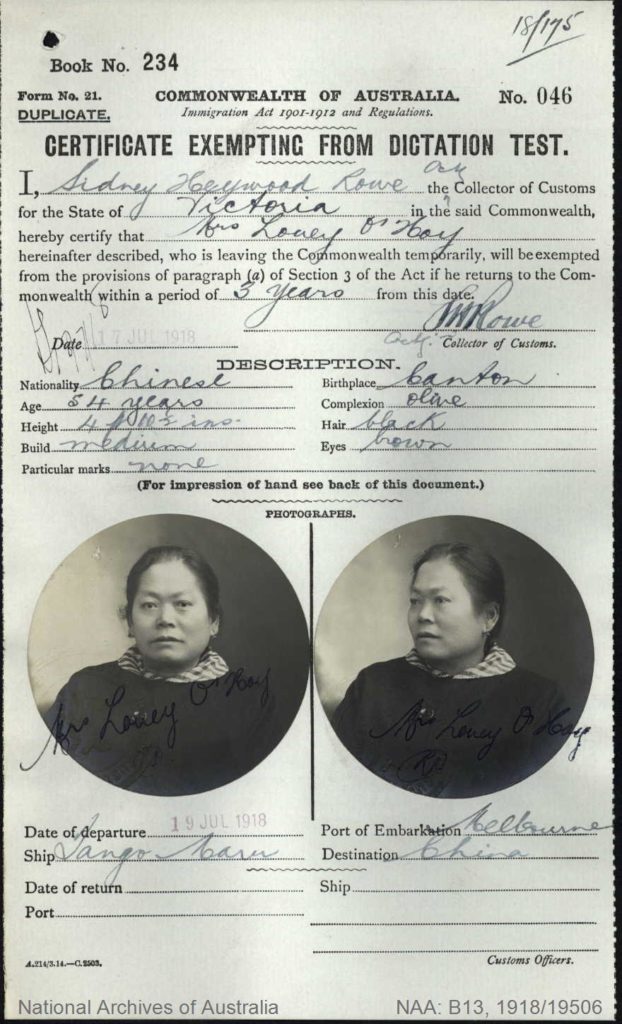 18/175
Book No. 234
Form No. 21. COMMONWEALTH OF AUSTRALIA. No. 046
DUPLICATE. Immigration Act 1901-1912 and Regulations.
CERTIFICATE EXEMPTING FROM DICTATION TEST.
I, Sidney Heywood Rowe Actg the Collector of Customs
for the State of Victoria in the said Commonwealth,
hereby certify that Mrs Louey O'Hoy
hereinafter described, who is leaving the Commonwealth temporarily, will be exempted
from the provisions of paragraph (a) of Section 3 of the Act if he returns to the Com-
monwealth within a period of 3 years from this date.
Date 17 JUL 1918
SHRowe
Actg. Collector of Customs.
DESCRIPTION.
Nationality Chinese Birthplace Canton
Age 54 years Complexion olive
Height 4 ft 10½ ins. Hair black
Build medium Eyes brown
Particular marks none
(For impression of hand see back of this document.)
PHOTOGRAPHS.
Mrs Louey O'Hoy Mrs Louey O'Hoy
Date of departure 19 JUL 1918 Port of Embarkation Melbourne
Ship Tango Maru Destination China
Date of return Ship
Port
A.214/3.14.—C.2503. Customs Officers.
National Archives of Australia NAA: B13, 1918/19506